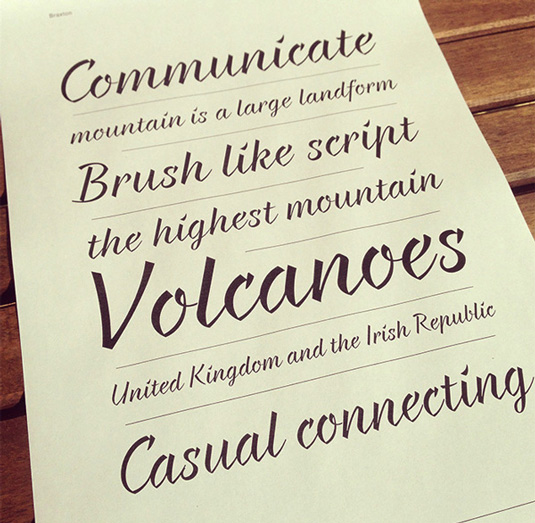 Braxton
Communicate
mountain is a large landform
Brush like script
the highest mountain
Volcanoes
United Kingdom and the Irish Republic
Casual connecting